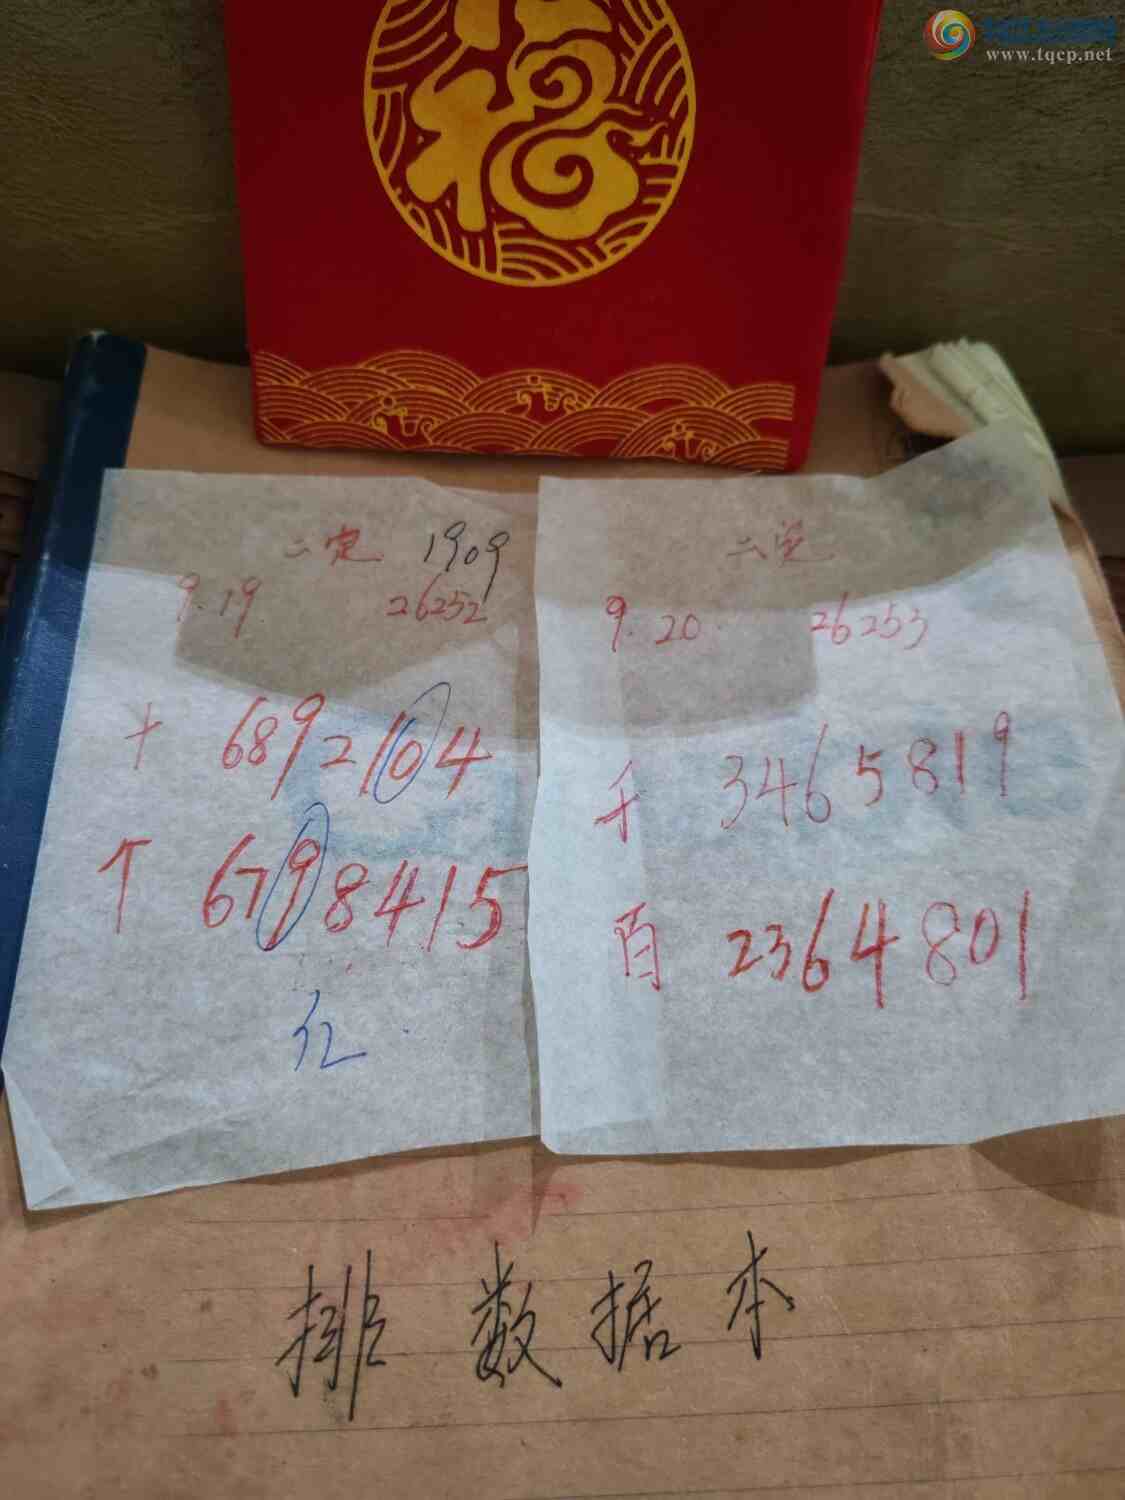 福
www.tqcp.net
二定 1909
9.19 26252
十 6892104
个 6798415
红
二定
9.20 26253
千 3465819
百 2364801
排数据本